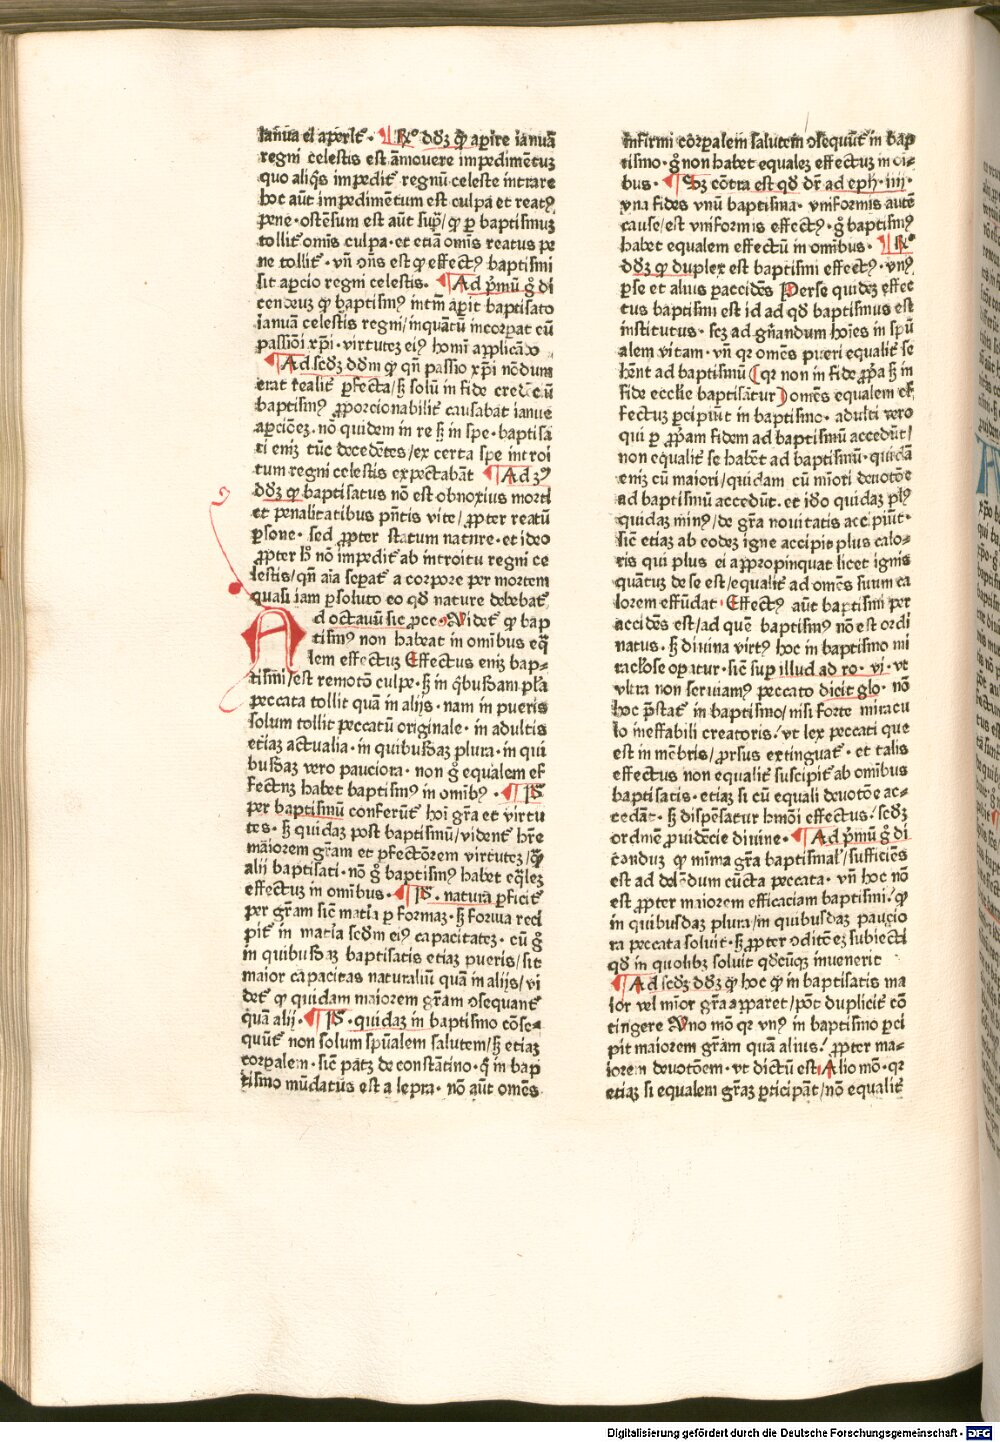 ianua ei aperiẗ · ¶ Rͦ dōꝫ ꝙ aperire ianuā
regni celestis est amouere impedimentuꝫ
quo aliq̄s impediẗ regnū celeste intrare
hoc aūt impedimentum est culpa et reatꝰ
pene · ostēsum est aūt sup̄/ꝙ ꝑ baptismuꝫ
tolliẗ omīs culpa · et etiā omīs reatus pe
ne tolliẗ · vñ ꝯñs est ꝙ effectꝰ baptismi
sit apcio regni celestis. ¶ Ad p̄mū g̊ di
cendeuꝫ ꝙ baptismꝰ intm̄ apit baptisato
ianuā celestis regni/inquātū incorꝑat eū
passiōi xp̄i · virtuteꝫ eiꝰ homī applicādo
¶ Ad scd̄ꝫ dd̄m ꝙ qñ passio xp̄i nōdum
erat realiẗ ꝑfecta/ꝫ solū in fide credēciū
baptismꝰ ꝓporcionabiliẗ causabat ianue
apcōeꝫ. nō quidem in re ꝫ in spe · baptisa
ti eniꝫ tūc decedētes/ex certa spe introi
tum regni celestis expectabāt ¶ Ad 3ꝰ
dd̄ꝫ ꝙ baptisatus nō est obnoxius morti
et penalitatibus pñtis vite/ꝓpter reatū
ꝑsone · sed ꝓpter statum nature · et ideo
ꝓpter h̄ nō impediẗ ab introitu regni ce
lestis/qñ aīa sepaẗ a corpore per mortem
quasi iam ꝑsoluto eo qd̄ nature debebaẗ
Ad octauū sic ꝓce. Videẗ ꝙ bap
tismꝰ non habeat in omībus eq̄
lem effectuꝫ Effectus eniꝫ bap-
tismi/est remotō culpe · ꝫ in q̄busdam pl̄a
peccata tollit quā in alijs · nam in pueris
solum tollit peccatū originale · in adultis
etiaꝫ actualia · in quibusdaꝫ plura · in qui
busdaꝫ vero pauciora · non g̊ equalem ef
fectuꝫ habet baptismꝰ in omibꝰ · ¶ Pͣ
per baptismū conferūẗ hoī gr̄a et virtu
tes · ꝫ quidaꝫ post baptismū/videnẗ hr̄e
maiorem gr̄am et ꝑfectōrem virtuteꝫ/q̄ꝫ
alii baptisati · nō g̊ baptismꝰ habet eq̄leꝫ
effectuꝫ in omībus · ¶ Pͣ. natura ꝑficiẗ
per gr̄am sic̄ mat̄ia ꝑ formaꝫ · ꝫ forma reci
piẗ in mat̄ia scd̄m eiꝰ capacitateꝫ · cū g̊
in quibusdaꝫ baptisatis etiaꝫ pueris/sit
maior capacitas naturaliū quā in alijs/vi
deẗ ꝙ quidam maiorem gr̄am ꝯsequanẗ
quā alij · ¶ Pͣ · quidaꝫ in baptismo cōse-
quūẗ non solum spūalem salutem/ꝫ etiaꝫ
corꝑalem · sic̄ patꝫ de constātino · q̄ in bap
tismo mūdatus est a lepra · nō aūt omēs
infirmi corꝑalem salutem ꝯsequūẗ in bap
tismo · g̊ non habet equaleꝫ effectuꝫ in oī-
bus · ¶ Sꝫ cōtra est qd̄ dr̄ ad eph · iiij ·
vna fides vnū baptisma · vniformis autē
cause/est vniformis effectꝰ · g̊ baptismꝰ
habet equalem effectū in omībus · ¶ Rͦ
dōꝫ ꝙ duplex est baptismi effectꝰ · vnꝰ
ꝑ se et alius ꝑ accidēs Per se quideꝫ effec
tus baptismi est id ad qd̄ baptismus est
institutus · scꝫ ad gn̄andum hoīes in spū
alem vitam · vñ qꝛ omēs pueri equaliẗ se
hēnt ad baptismū (qꝛ non in fide ꝓpa ꝫ in
fide ecclīe baptisātur) omēs equalem ef
fectuꝫ ꝑcipiūt in baptismo · adulti vero
qui ꝑ ꝓpam fidem ad baptismū accedūt/
non equaliẗ se habēt ad baptismū · quidā
eniꝫ cū maiori/quidam cū mīori deuotōe
ad baptismū accedūt. et iđo quidaꝫ plꝰ
quidaꝫ minꝰ/de gr̄a nouitatis accipiūt ·
sic̄ etiaꝫ ab eodeꝫ igne accipit plus calo-
ris qui plus ei appropinquat licet ignis
quātuꝫ de se est/equaliẗ ad omēs suum ca
lorem effūdat · Effectꝰ aūt baptismi per
accidēs est/ad quē baptismꝰ nō est ordi
natus · ꝫ diuina virtꝰ hoc in baptismo mi
raclōse oꝑatur · sic̄ sup illud ad ro · vj · vt
vltra non seruiamꝰ peccato dicit glo · nō
hoc p̄staẗ in baptismo/nisi forte miracu
lo ineffabili creatoris/ vt lex peccati que
est in mēbris/ꝓrsus extinguaẗ · et talis
effectus non equaliẗ suscipiẗ ab omībus
baptisatis · etiaꝫ si cū equali deuotōe ac-
cedāt · ꝫ dispēsatur hmōi effectus/ scd̄ꝫ
ordinē ꝓuidēcie diuine · ¶ Ad p̄mū g̊ di
cenduꝫ ꝙ mīma gr̄a baptismal̄/sufficiēs
est ad delendum cūcta peccata · vñ hoc nō
est ꝓpter maiorem efficaciam baptismi/ ꝙ
in quibusdaꝫ plura/in quibusdaꝫ paucio
ra peccata soluit · ꝫ ꝓpter ꝯditōeꝫ subiecti
qd̄ in quolibꝫ soluit qd̄cūqꝫ inuenerit
¶ Ad scd̄ꝫ dd̄ꝫ ꝙ hoc ꝙ in baptisatis ma
ior vel mīor gr̄a apparet/pōt dupliciẗ cō
tingere Vno mō qꝛ vnꝰ in baptismo ꝑci
pit maiorem gr̄am quā alius/ ꝓpter ma-
iorem deuotōem · vt dictū est Alio mō · qꝛ
etiaꝫ si equalem gr̄aꝫ ꝑticipāt/nō equaliẗ
Digitalisierung gefördert durch die Deutsche Forschungsgemeinschaft - DFG